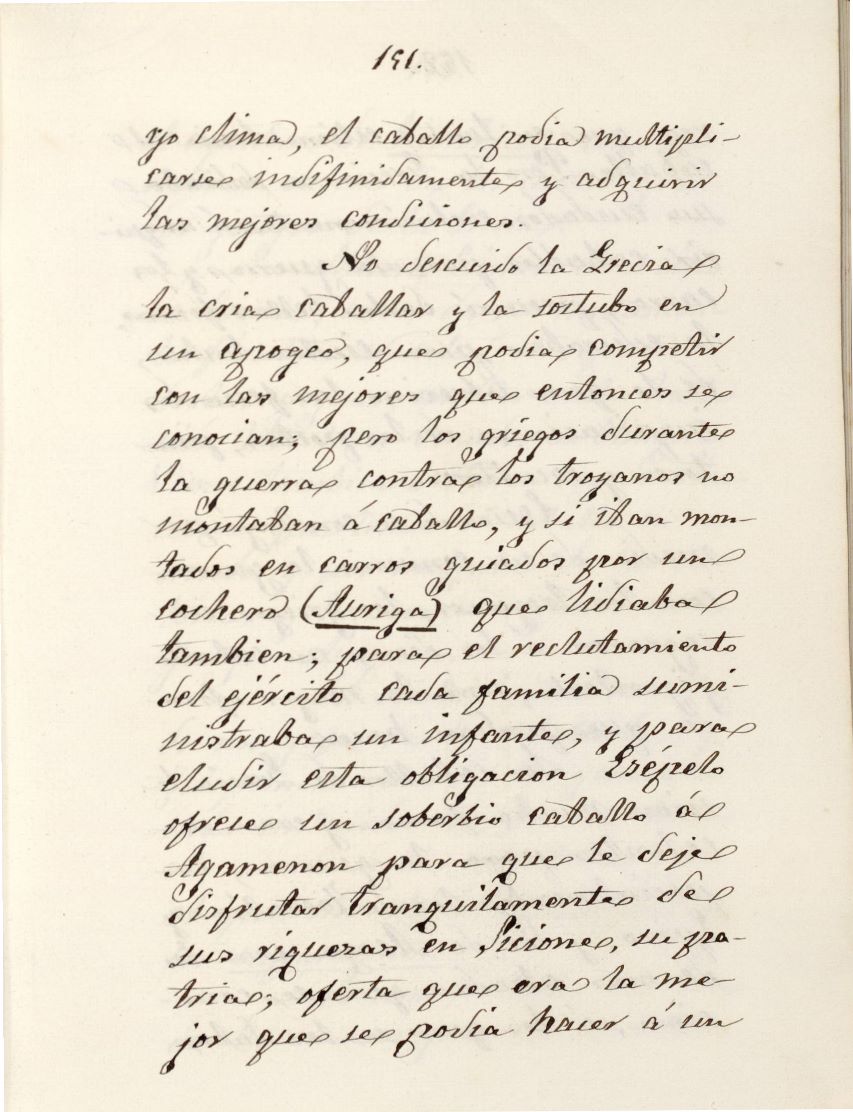 191.
yo clima, el caballo podia multipli-
carse indifinidamente y adquirir
las mejores condiciones.
No descuido la Grecia
la cria caballar y la sostubo en
un apogeo, que podia competir
con las mejores que entonces se
conocian; pero los griegos durante
la guerra contra los troyanos no
montaban á caballo, y si iban mon-
tados en carros guiados por un
cochero (Auriga) que lidiaba
tambien; para el reclutamiento
del ejército cada familia sumi-
nistraba un infante, y para
eludir esta obligacion
ofrece un soberbio caballo á
Agamenon para que le deje
disfrutar tranquilamente de
sus riquezas en Sicione, su pa-
tria; oferta que era la me-
jor que se podia hacer á un